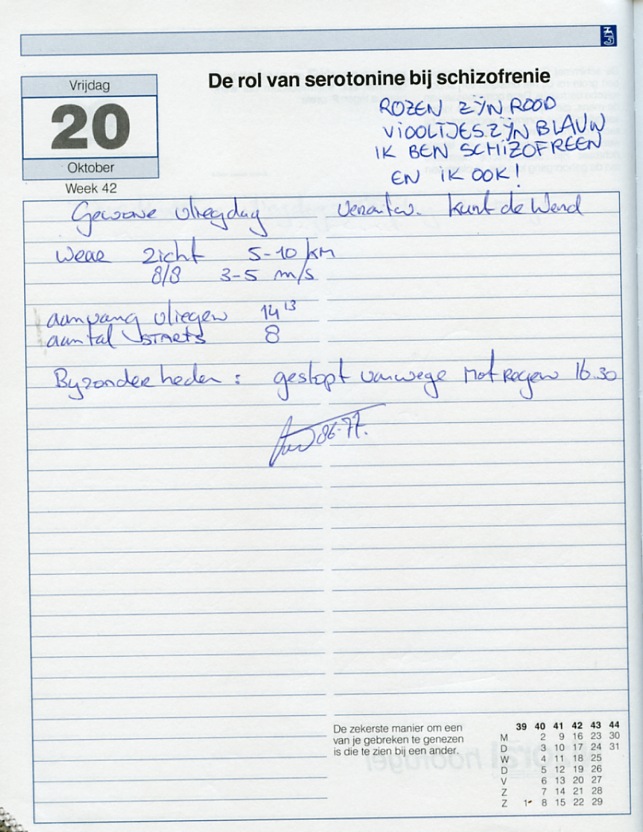 De rol van serotonine bij schizofrenie
Vrijdag
20
Oktober
Week 42
ROZEN ZIJN ROOD
VIOOLTJES ZIJN BLAUW
IK BEN SCHIZOFREEN
EN IK OOK!
Gewone vliegdag verantw. Kunt de Wend
Weer zicht 5-10 km
8/8 3-5 m/s
aanvang vliegen 14 13
aantal STARTS 8
Byzonderheden: gestopt vanwege Motregen 16.30
86-77.
De zekerste manier om een
van je gebreken te genezen
is die te zien bij een ander.
39 40 41 42 43 44
M 2 9 16 23 30
D 3 10 17 24 31
W 4 11 18 25
D 5 12 19 26
V 6 13 20 27
Z 7 14 21 28
Z 1 8 15 22 29